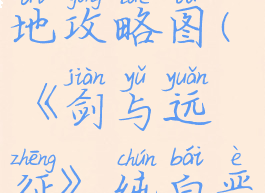 地攻略图(
jiàn yǔ yuǎn
《剑与远
zhēng chún bái è
征》纯白恶